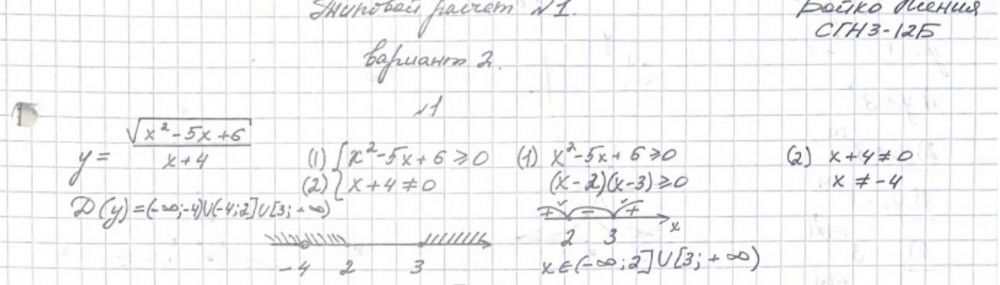 Типовой расчет №1.
Бойко Ксения
СГН3-12Б
вариант 2.
№1
y = √(x²-5x+6) / (x+4)
(1) { x²-5x+6 ≥ 0
(2) { x+4 ≠ 0
(1) x²-5x+6 ≥ 0
(x-2)(x-3) ≥ 0
+ - + x
2 3
x ∈ (-∞; 2] ∪ [3; +∞)
(2) x+4 ≠ 0
x ≠ -4
D(y) = (-∞; -4) ∪ (-4; 2] ∪ [3; +∞)
-4 2 3